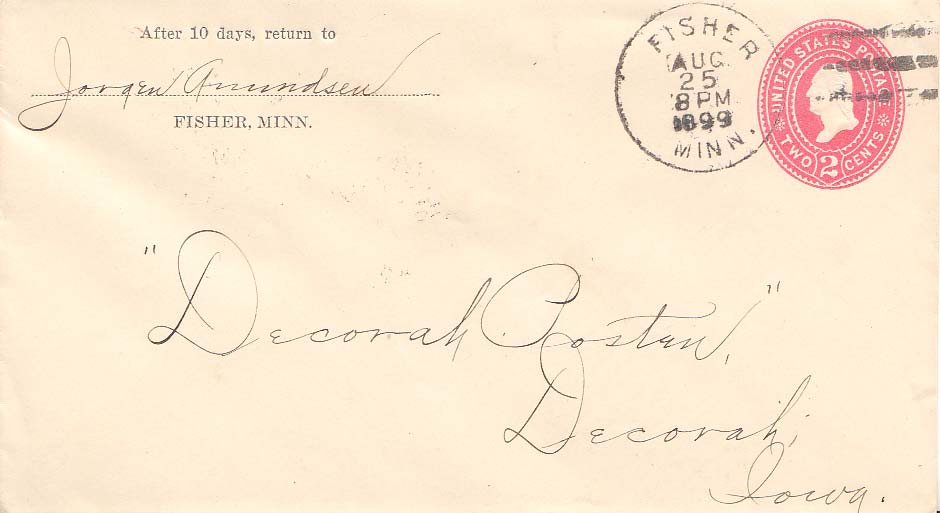 After 10 days, return to
Jorgen Amundsen
FISHER, MINN.
FISHER
AUG
25
8 PM
1899
MINN.
UNITED STATES POSTAGE
TWO 2 CENTS
"Decorah Posten,"
Decorah,
Iowa.